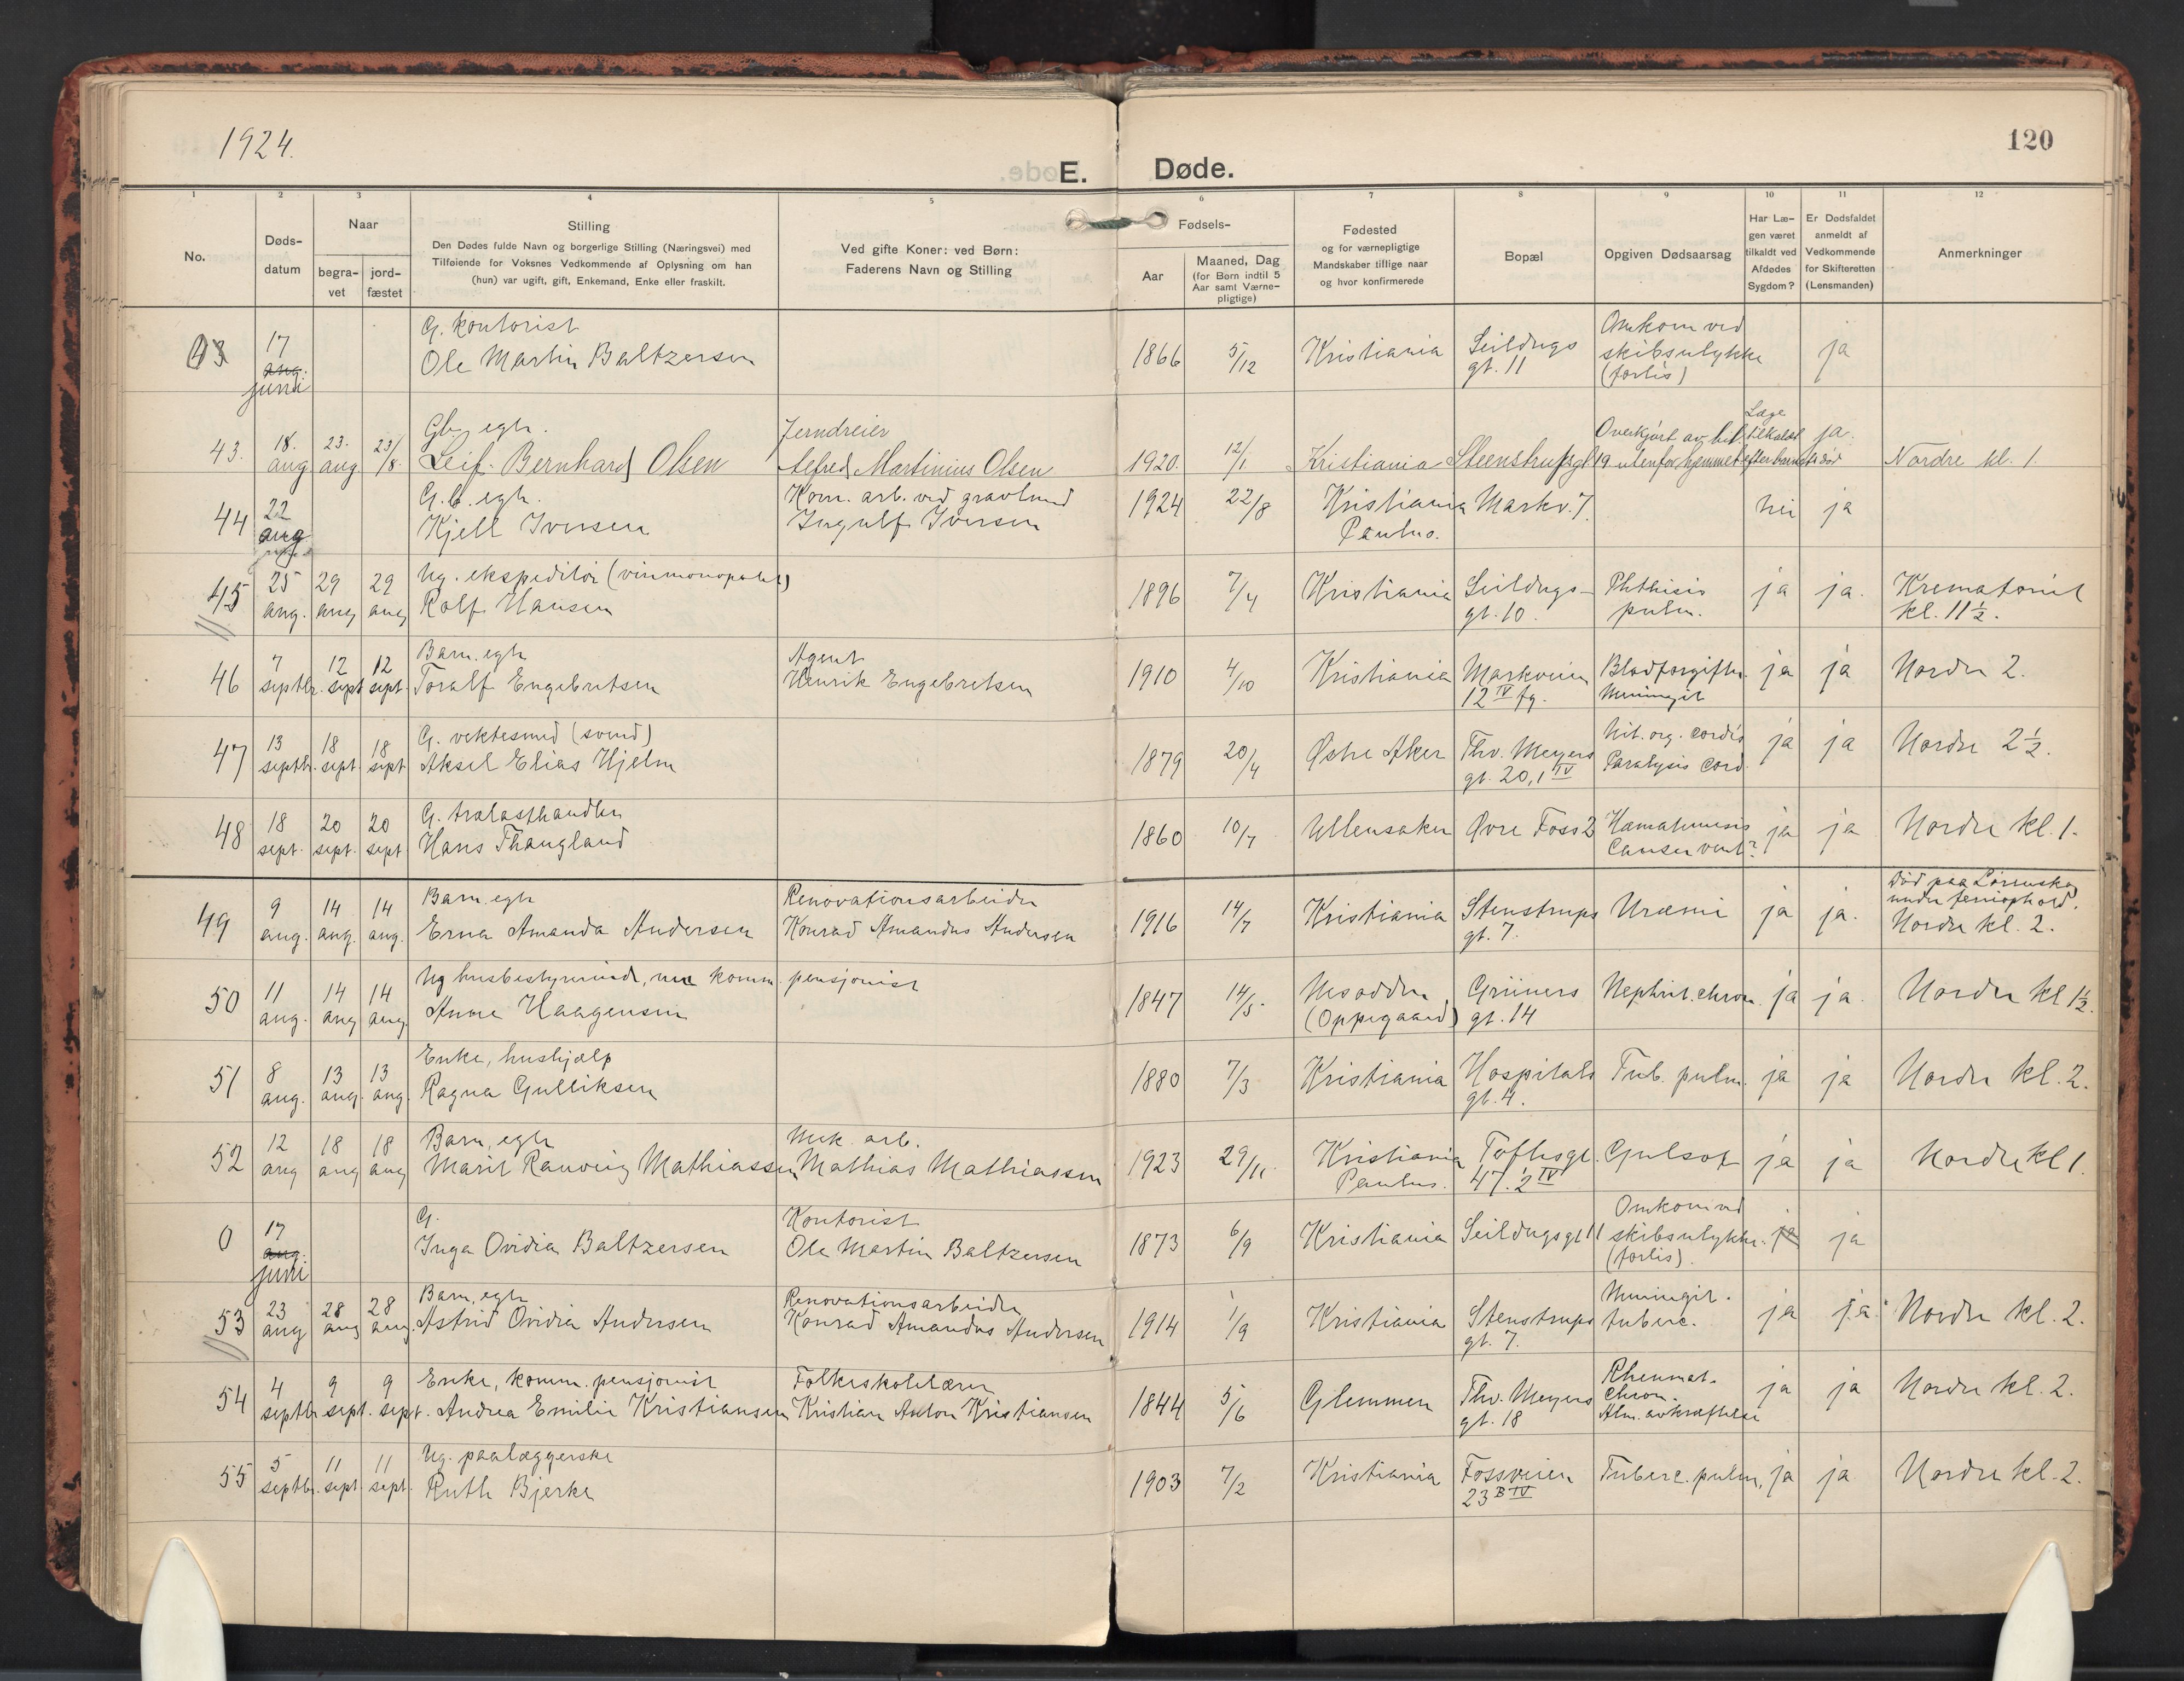 1924.
120
E. Døde.
1 2 3 4 5 6 7 8 9 10 11 12
No.
Døds-
datum
Naar
begra-
vet
jord-
fæstet
Stilling
Den Dødes fulde Navn og borgerlige Stilling (Næringsvei) med
Tilføiende for Voksnes Vedkommende af Oplysning om han
(hun) var ugift, gift, Enkemand, Enke eller fraskilt.
Ved gifte Koner: ved Børn:
Faderens Navn og Stilling
Fødsels-
Aar
Maaned, Dag
(for Børn indtil 5
Aar samt Værne-
pligtige)
Fødested
og for værnepligtige
Mandskaber tillige naar
og hvor konfirmerede
Bopæl
Opgiven Dødsaarsag
Har Læ-
gen været
tilkaldt ved
Afdødes
Sygdom?
Er Dødsfaldet
anmeldt af
Vedkommende
for Skifteretten
(Lensmanden)
Anmerkninger
17 aug. juni
G. kontorist
Ole Martin Baltzersen
1866 5/12 Kristiania
Seildugs
gt. 11
Omkom ved
skibsulykke
(forlis)
ja
43. 18. aug 23. aug 23/8.
Gb. egte.
Leif Bernhard Olsen
Jerndreier
Alfred Martinius Olsen
1920. 12/1 Kristiania Steenstrupsgt 19
Overkjørt av bil
utenfor hjemmet
Læge
tilkaldt
efter barnets død
ja.
Nordre kl. 1.
44 22 aug
G.b. egte.
Kjell Iversen
Kom. arb. ved gravlund
Ingulf Iversen
1924 22/8
Kristiania
Paulus.
Markv. 7.
nei ja
45 25 aug. 29 aug 29 aug
Ug. ekspeditør (vinmonopolet)
Rolf Hansen
1896 7/4 Kristiania
Seildugs-
gt. 10.
Phthisis
pulm.
ja ja.
Krematoriet
kl. 11 1/2.
46 7 septbr. 12 sept 12 sept.
Barn. egte
Toralf Engebretsen
Agent
Henrik Engebretsen
1910 4/10 Kristiania
Markveien
12 IV fg.
Blodforgiftn.
Meningit
ja ja Nordre 2.
47 13 septbr. 18 sept. 18 sept
G. vektesmed (svend)
Aksel Elias Hjelm
1879 20/4 Østre Aker
Thv. Meyers
gt. 20, 1 IV
Vit. org. cordis
Paralysis cord.
ja ja Nordre 2 1/2.
48 18 sept. 20 sept. 20 sept
G. trælasthandler
Hans Thaugland
1860 10/7 Ullensaker Øvre Foss 2
Hæmatemesis
Cancer vent?
ja ja Nordre kl. 1.
49 9 aug. 14 aug. 14 aug.
Barn egte
Erna Amanda Andersen
Renovationsarbeider
Konrad Amandus Andersen
1916 14/7 Kristiania
Stenstrups
gt. 7.
Uræmi ja ja.
Død paa Lørenskog
under ferieophold.
Nordre kl. 2.
50 11 aug. 14 aug 14 aug.
Ug husbestyrerinde, nu komm. pensjonist
Anne Haagensen
1847 14/5
Nesodden
(Oppegaard)
Grüners
gt. 14
Nephrit. chron. ja ja. Nordre kl 1 1/2.
51 8 aug. 13 aug. 13 aug.
Enke, hushjælp
Ragna Gulliksen
1880 7/3 Kristiania
Hospitals
gt. 4.
Tub. pulm. ja ja Nordre kl. 2.
52 12 aug 18 aug 18 aug
Barn, egte
Marit Rauveig Mathiassen
Mek. arb.
Mathias Mathiassen
1923 29/11.
Kristiania
Paulus.
Toftesgt.
47. 2 IV
Gulsot ja ja Nordre kl 1.
0 17 aug. juni
G.
Inga Ovidia Baltzersen
Kontorist
Ole Martin Baltzersen
1873 6/9 Kristiania Seildugsgt 11
Omkom ved
skibsulykke.
(forlis).
ja ja
53 23 aug 28 aug 28 aug.
Barn, egte
Astrid Ovidia Andersen
Renovationsarbeider
Konrad Amandus Andersen
1914 1/9 Kristiania
Stenstrups
gt. 7.
Meningit.
tuberc.
ja ja. Nordre kl. 2.
54 4 septbr 9 sept. 9 sept.
Enke, komm. pensjonist
Andrea Emilie Kristiansen
Folkeskolelærer
Kristian Anton Kristiansen
1844 5/6 Glemmen
Thv. Meyers
gt. 18
Rheumat.
chron.
Alm. avkræftelse
ja ja Nordre kl. 2.
55 5 septbr. 11 sept 11 sept.
Ug. paalæggerske
Ruth Bjerke
1903 7/2 Kristiania
Fossveien
23 B IV
Tuberc. pulm, ja ja Nordre kl. 2.